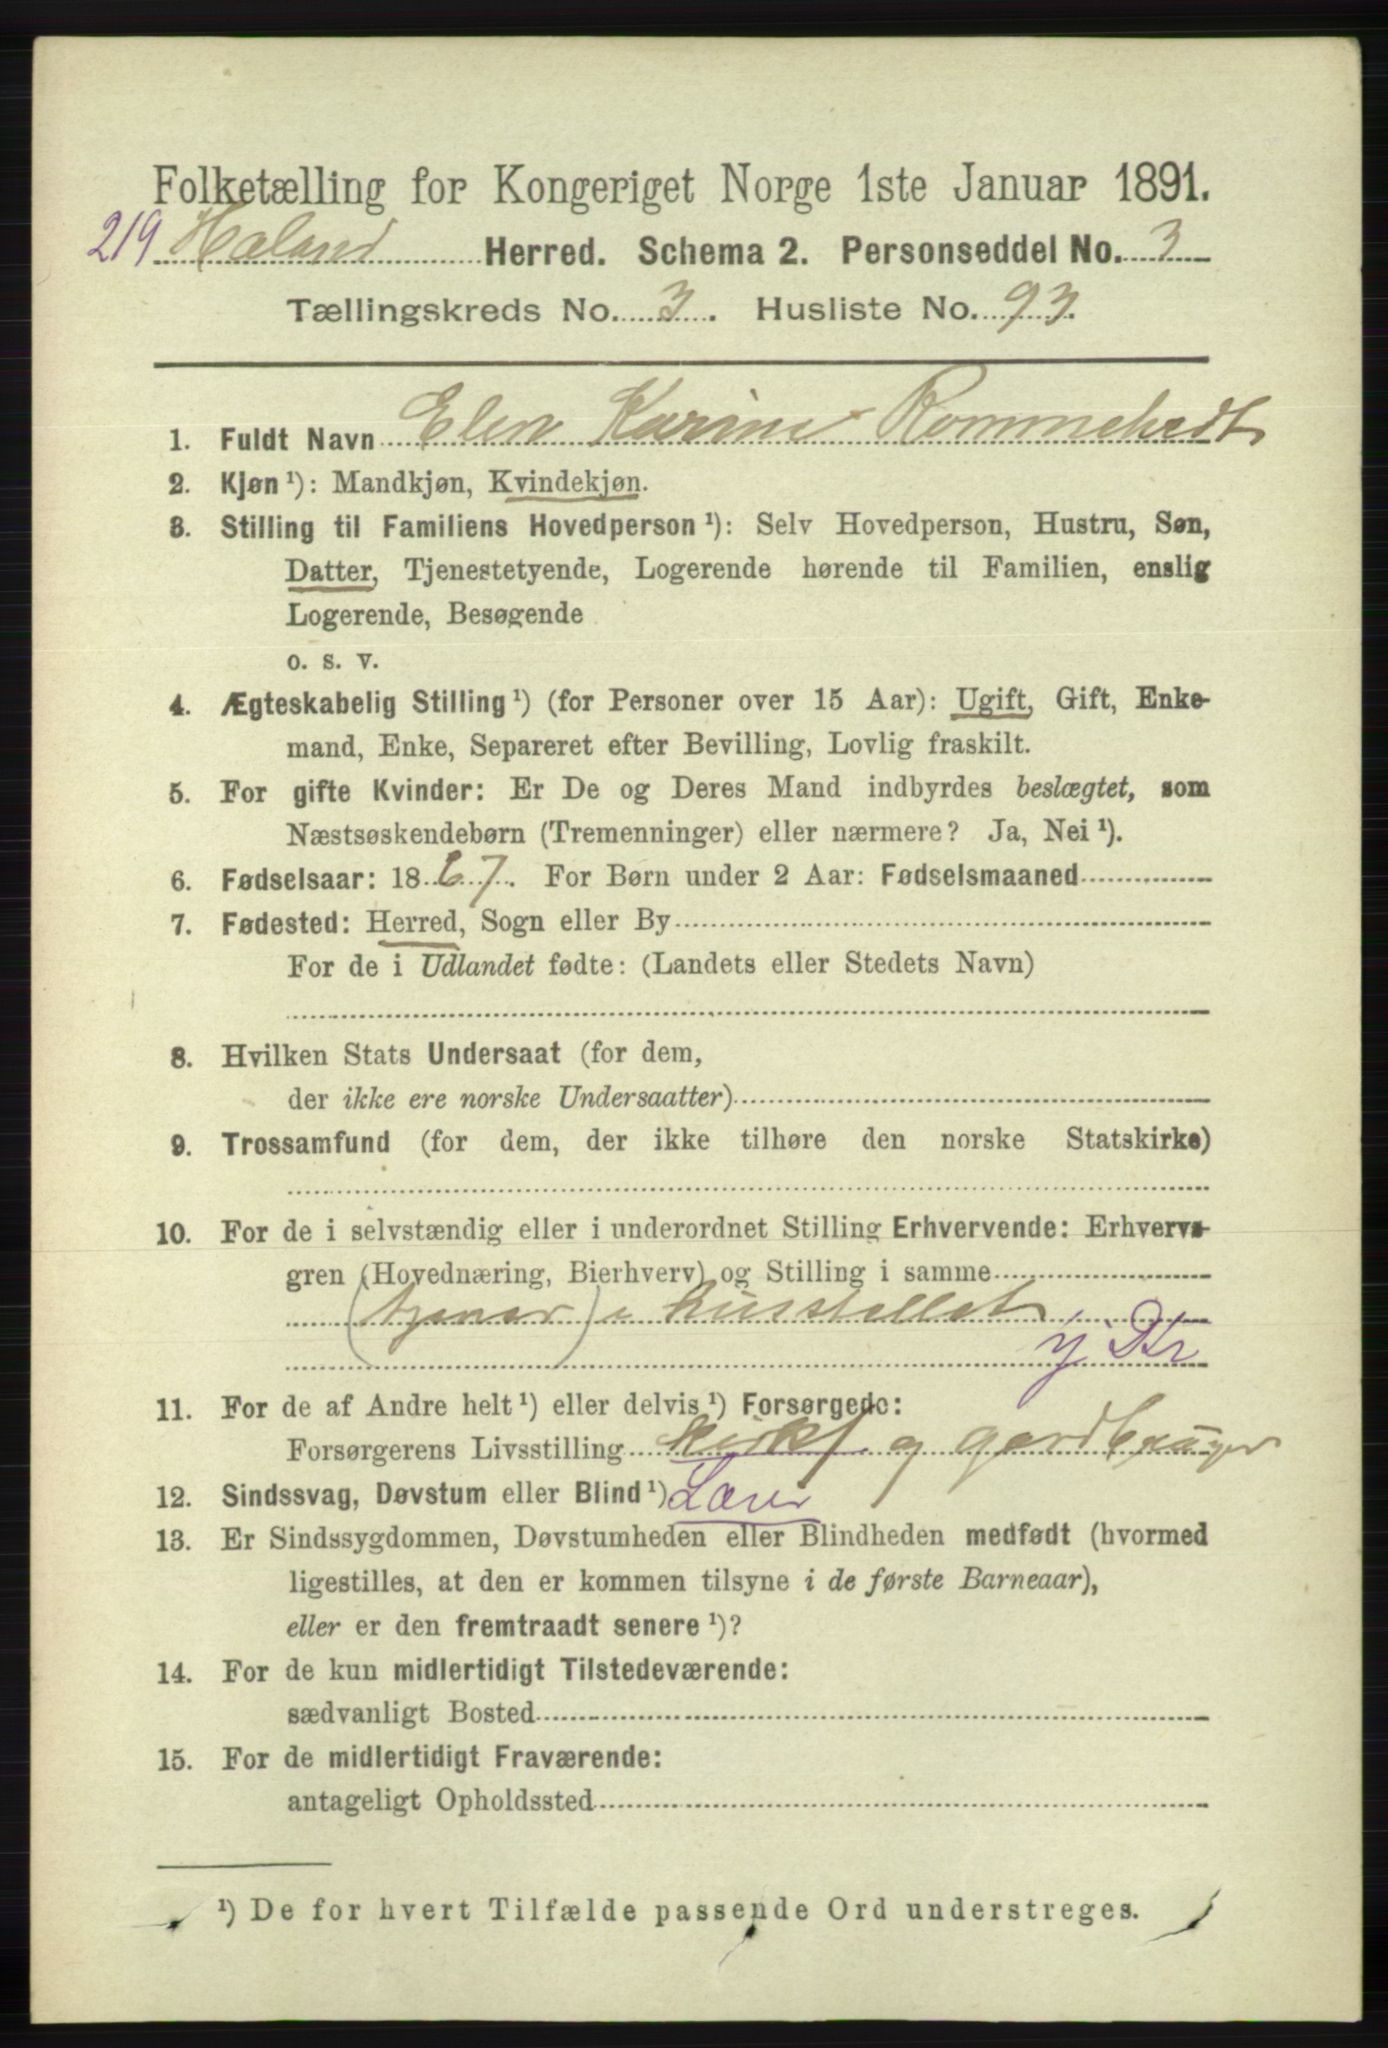 Folketælling for Kongeriget Norge 1ste Januar 1891.
219 Haland Herred. Schema 2. Personseddel No. 3
Tællingskreds No. 3. Husliste No. 93.
1. Fuldt Navn Elen Karine Rommetvedt
2. Kjøn ¹): Mandkjøn, Kvindekjøn.
3. Stilling til Familiens Hovedperson ¹): Selv Hovedperson, Hustru, Søn,
Datter, Tjenestetyende, Logerende hørende til Familien, enslig
Logerende, Besøgende
o. s. v.
4. Ægteskabelig Stilling ¹) (for Personer over 15 Aar): Ugift, Gift, Enke-
mand, Enke, Separeret efter Bevilling, Lovlig fraskilt.
5. For gifte Kvinder: Er De og Deres Mand indbyrdes beslægtet, som
Næstsøskendebørn (Tremenninger) eller nærmere? Ja, Nei ¹).
6. Fødselsaar: 1867. For Børn under 2 Aar: Fødselsmaaned
7. Fødested: Herred, Sogn eller By
For de i Udlandet fødte: (Landets eller Stedets Navn)
8. Hvilken Stats Undersaat (for dem,
der ikke ere norske Undersaatter)
9. Trossamfund (for dem, der ikke tilhøre den norske Statskirke)
10. For de i selvstændig eller i underordnet Stilling Erhvervende: Erhvervs-
gren (Hovednæring, Bierhverv) og Stilling i samme
(tjener) i husstellet
11. For de af Andre helt ¹) eller delvis ¹) Forsørgede:
Forsørgerens Livsstilling kirks. og gardbruger
12. Sindssvag, Døvstum eller Blind ¹) Lærer
13. Er Sindssygdommen, Døvstumheden eller Blindheden medfødt (hvormed
ligestilles, at den er kommen tilsyne i de første Barneaar),
eller er den fremtraadt senere ¹)?
14. For de kun midlertidigt Tilstedeværende:
sædvanligt Bosted
15. For de midlertidigt Fraværende:
antageligt Opholdssted
¹) De for hvert Tilfælde passende Ord understreges.